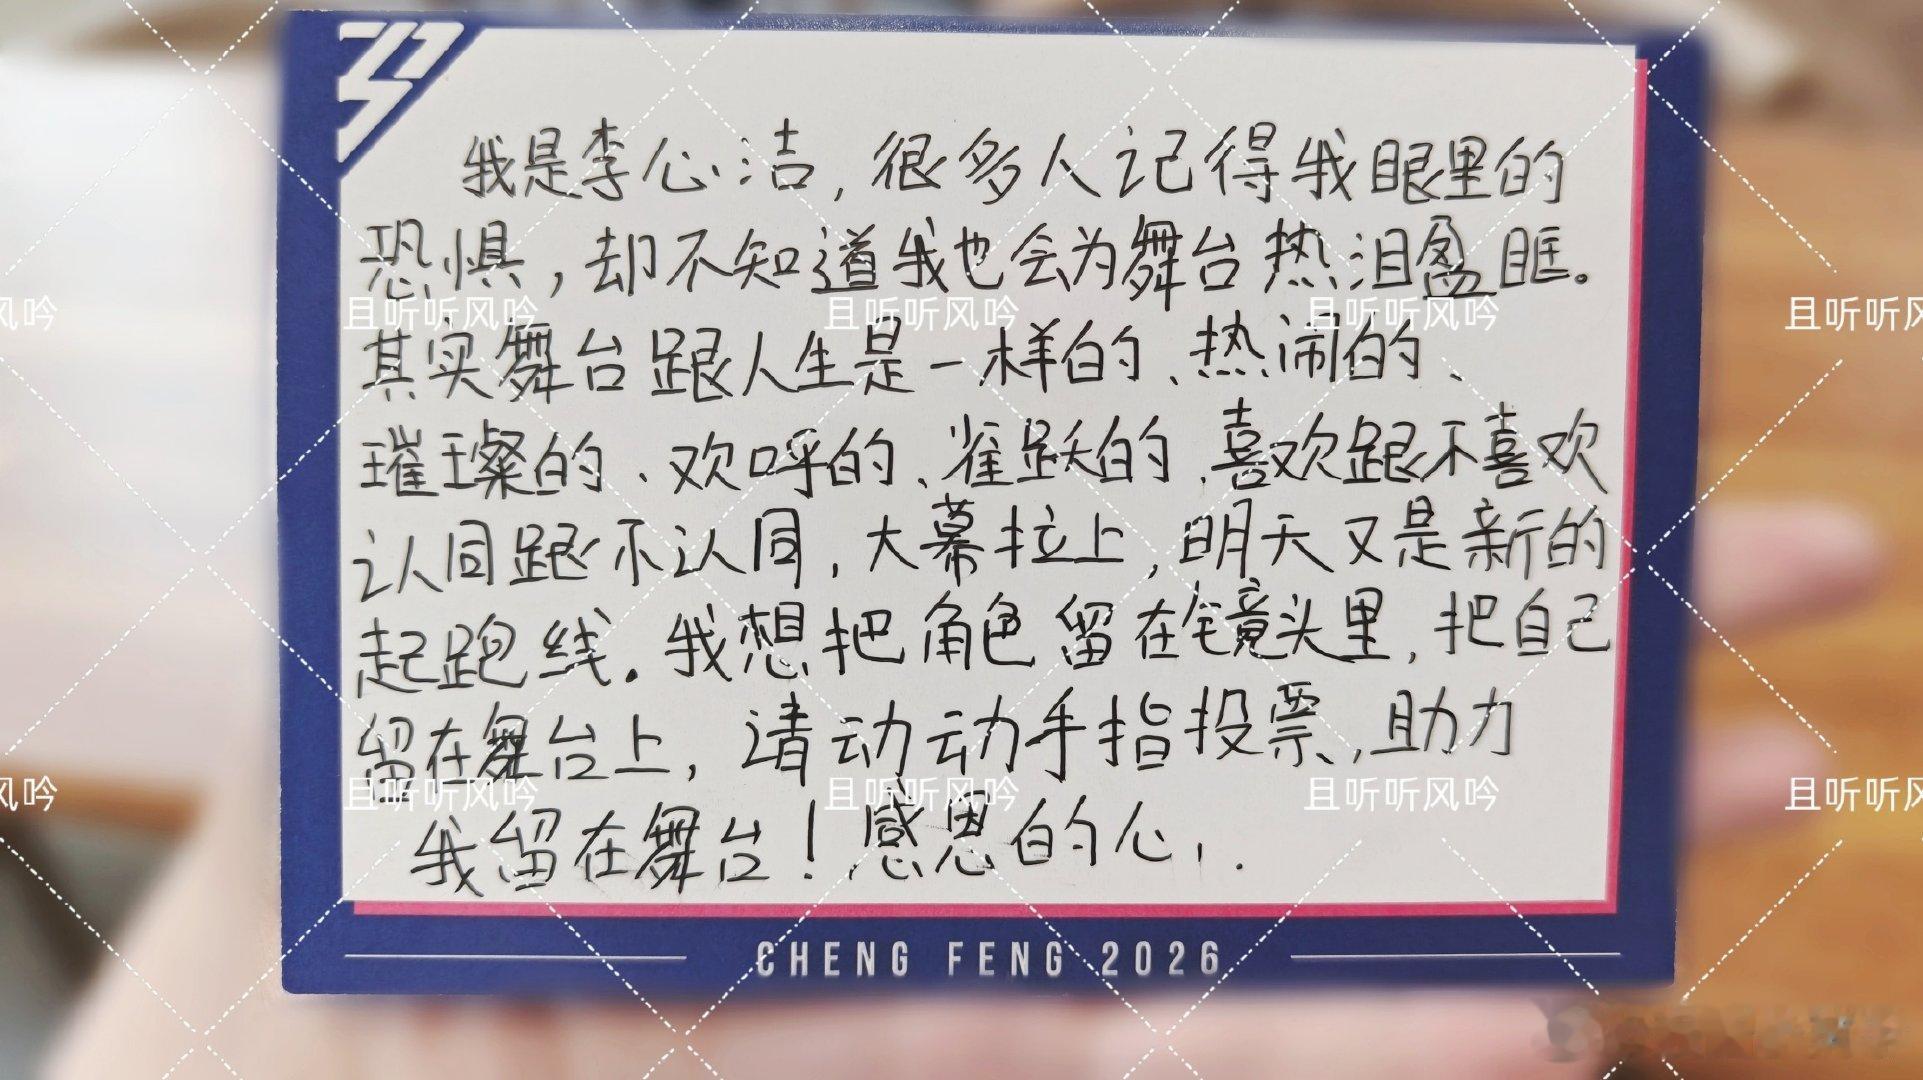 我是李心洁,很多人记得我眼里的
恐惧,却不知道我也会为舞台热泪盈眶。
且听听风吟 且听听风吟 且听听风吟 且听听风
其实舞台跟人生是一样的、热闹的、
璀璨的、欢呼的、雀跃的、喜欢跟不喜欢
认同跟不认同,大幕拉上,明天又是新的
起跑线。我想把角色留在镜头里,把自己
留在舞台上,请动动手指投票,助力
且听听风吟 且听听风吟 且听听风吟 且听听风
我留在舞台!感恩的心,.
CHENG FENG 2026